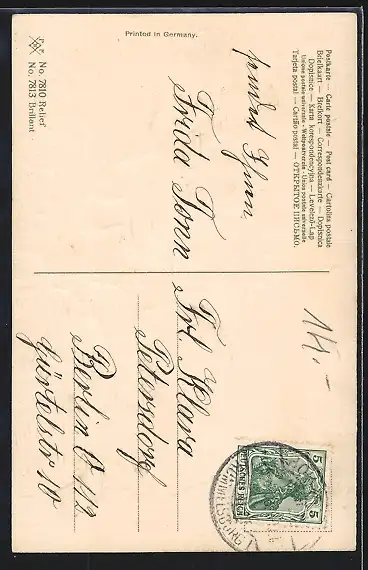 Postkarte — Carte postale — Post card — Cartolina postale
Briefkaart — Brefkort — Correspondenzkarte — Dopisnica
Dopisnice — Karta korespondencyjna — Levelező-Lap
Unione postale universale - Weltpostverein - Union postale universelle
Tarjeta postal — Cartão postal — ОТКРЫТОЕ ПИСЬМО.
Printed in Germany.
sendet Ihnen
Frida Tonn
Frl. Klara
Petersdorf
Berlin O 112
Gürtelstr 10
14.-
5 5
DEUTSCHES REICH
No. 7810 Relief
No. 7813 Brillant